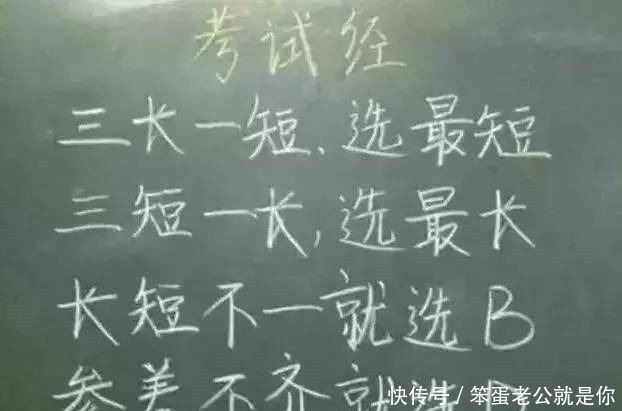 考试经
三长一短、选最短
三短一长,选最长
长短不一就选B
参差不齐就选
快传号/笨蛋老公就是你